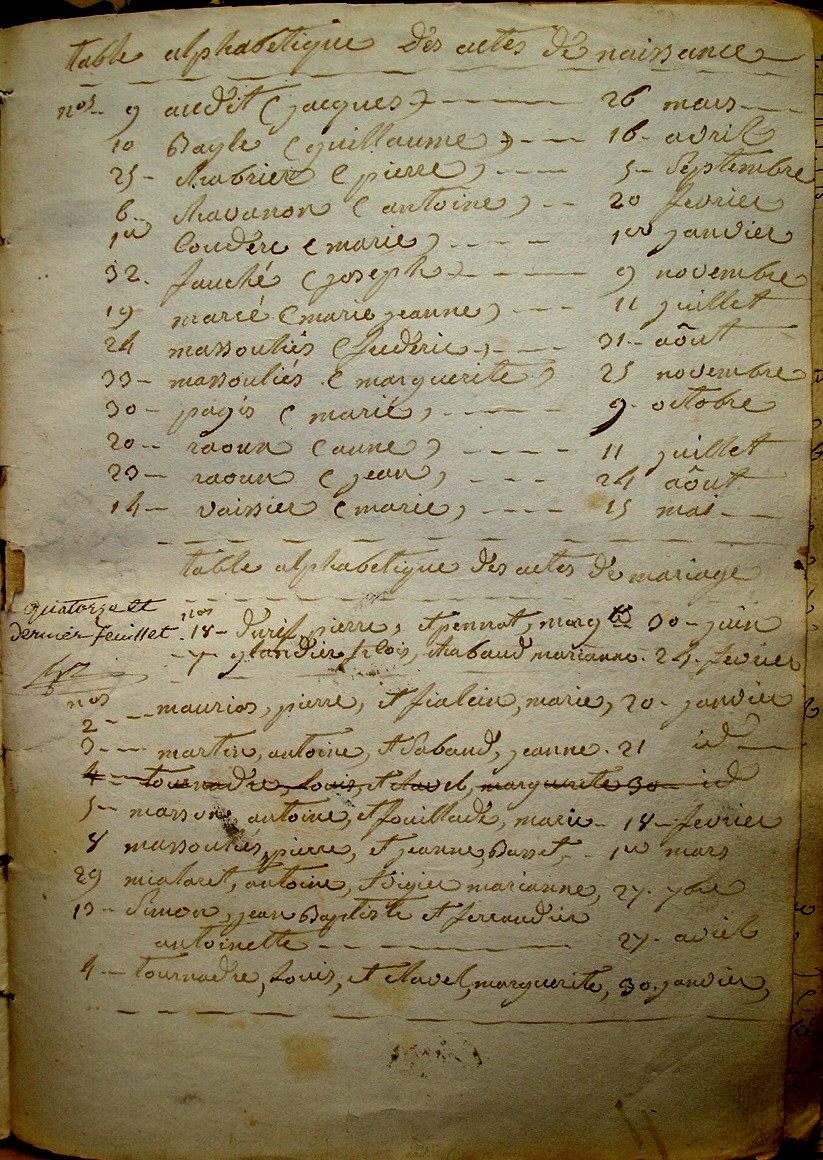 table alphabetique dés actes dé naissance
nos 9 audit (jacques) 26 mars
10 Bayle (guillaume) 16 avril
25 chabrier (pierre) 5 Septembre
6 chavanon (antoine) 20 fevrier
1er Coudérc (marie) 1er janvier
32. fauché (joseph) 9 novembre
19 marcé (marie jeanne) 11 juillet
24 massouliés (fredéric) 31 aôut
33 massouliés (marguerite) 25 novembre
30 pagés (marie) 9 octobre
20 raoun (anne) 11 juillet
23 raoun (jean) 24 aôut
14 vaissier (marie) 15 mai
table alphabetique dés actes dé mariage
quatorze et
dernier feuillet
nos
18 durif, pierre, et pennat, margte 30 juin
7 glandier fcois, chabaud marianne. 24. fevrier
nos
2 maurios, pierre, et fialein, marie, 20 janvier
3 martin, antoine, et Sabaud, jeanne. 21 id
4 tournadre, Louis, et clavel, marguerite 30 id
5 masson, antoine, et fouilladé, marie 18 fevrier
8 massouliés, pierre, et jeanne, Basset, 1er mars
29 mialaret, antoine, et vigier marianne, 27. 7bre
13 Simon, jean Baptiste et ferrandier
antoinette 27. avril
4 tournadre, Louis, et clavel, marguerite, 30. janvier,